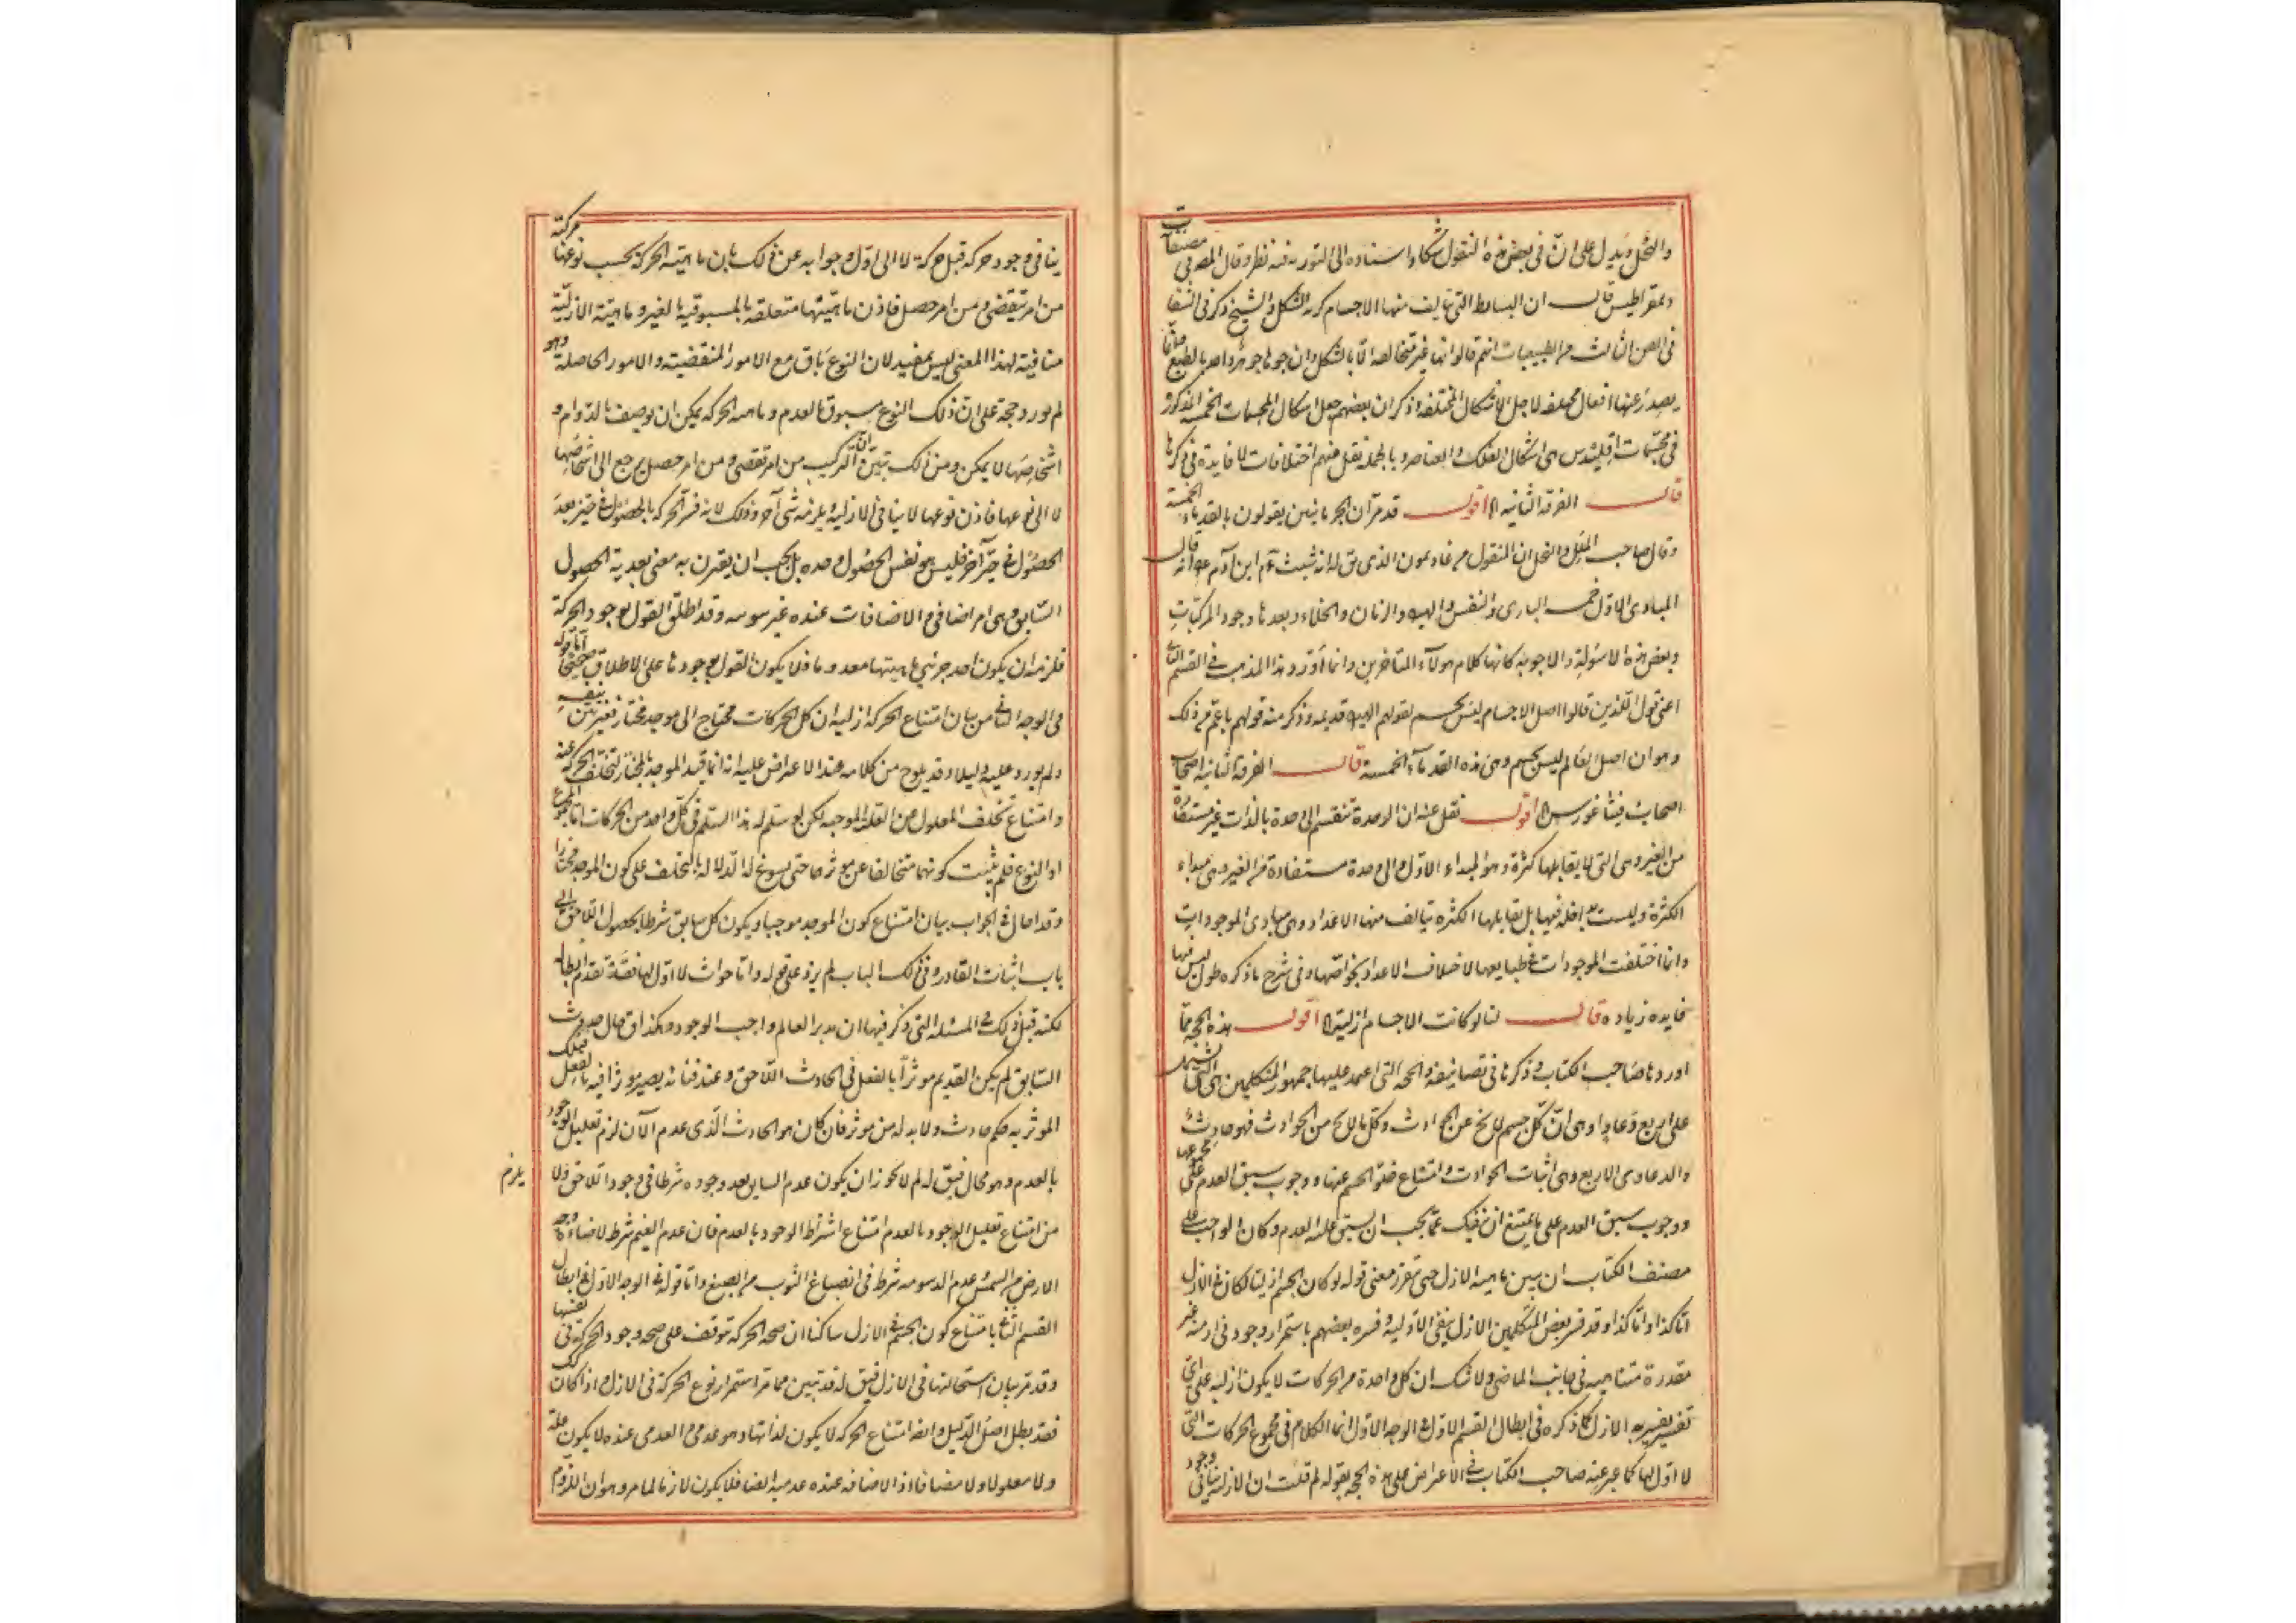 والنحل ويدل على ان في بعض هذه النقول شكا واسناده الى التورية فيه نظر وقال المصر في مصنفات
ديمقراطيس قال ان البسائط التي تتالف منها الاجسام كرية الشكل والشيخ ذكر في الشفا
في الفن الثالث من الطبيعيات انهم قالوا انها غير متخالفة الا بالشكل وان جوهرها جوهر واحد بالطبع وانما
يصدر عنها افعال مختلفة لاجل الاشكال المختلفة وذكر ان بعضهم جعل اشكال المجسمات الخمسة المذكورة
في مجسمات اقليدس هي اشكال الفلك والعناصر وبالجملة نقل منهم اختلافات لا فايدة في ذكرها
قال الفرقة الثانية الا اقول قد مر ان الحرنانيين يقولون بالقدماء الخمسة
وقال صاحب الملل والنحل ان المنقول من غاذيمون الذي يق له انه شيث بن آدم ع انه قال
المبادى الاول خمسة البارى والنفس والهيولى والزمان والخلاء وبعدها وجود المركبات
وبعض هذه الاسئولة والاجوبة كانها كلام هولاء المتاخرين وانما اورد هذا المذهب في القسم الثاني
اعني قول الذين قالوا اصل الاجسام ليس بجسم لقولهم الهيولى قديمة وذكر منه قولهم باعم من ذلك
وهو ان اصل العالم ليس بجسم وهي هذه القدماء الخمسة قال الفرقة الثانية اصحاب
اصحاب فيثاغورس الا اقول نقل عنه ان الوحدة تنقسم الى وحدة بالذات غير مستفادة
من الغير وهي التي لا يقابلها كثرة وهو المبداء الاول والى وحدة مستفادة من الغير وهي مبداء
الكثرة وليست بداخلة فيها بل يقابلها الكثرة يتالف منها الاعداد وهي مبادى الموجودات
وانما اختلفت الموجودات في طبايعها لاختلاف الاعداد بخواصها وفي شرح ما ذكره طول ليس فيها
فايدة زيادة قال لنا لو كانت الاجسام ازلية الا اقول هذه الحجة مما
اوردها صاحب الكتاب وذكرها في تصانيفه والحجة التي اعتمد عليها جمهور المتكلمين هي التي تشتمل
على اربع دعاوى وهي ان كل جسم لا يخ عن الحوادث وكل ما لا يخ من الحوادث فهو حادث
والدعاوى الاربع هي اثبات الحوادث وامتناع خلو الجسم عنها ووجوب سبق العدم على مجموعها
ووجوب سبق العدم على ما يمتنع ان ينفك عما يجب ان يسبق عليه العدم وكان الواجب على
مصنف الكتاب ان يبين ماهية الازل حتى يتقرر معنى قوله لو كان الجسم ازليا لكان في الازل
اما كذا واما كذا وقد فسر بعض المتكلمين الازل بنفي الاولية وفسره بعضهم باستمرار وجود في ازمنة غير
مقدرة متناهية في جانب الماضي ولا شك ان كل واحدة من الحركات لا يكون ازلية على اي
تفسير يفسر به الازل كما ذكره في ابطال القسم الاول في الوجه الاول انما الكلام في مجموع الحركات التي
لا اول لها كما عبر عنه صاحب الكتاب في الاعتراض على هذه الحجة بقوله لم قلت ان الازلية ينافي وجود
ينافي وجود حركة قبل حركة لا الى اول وجوابه عن ذلك بان ماهية الحركة بحسب نوعها مركبة
من امر تقضى ومن امر حصل فاذن ماهيتها متعلقة بالمسبوقية بالغير وماهية الازلية
منافية لهذا المعنى ليس بمفيد لان النوع باق مع الامور المنقضية والامور الحاصلة وهو
لم يورد حجة على ان ذلك النوع مسبوق بالعدم وماهية الحركة يمكن ان يوصف بالدوام و
اشخاصها لا يمكن ومن ذلك تبين ان التركيب من امر تقضى ومن امر حصل يرجع الى اشخاصها
لا الى نوعها فاذن نوعها لا ينافي الازلية ويلزمه شي آخر وذلك لانه فسر الحركة بالحصول في حيز بعد
الحصول في حيز آخر فليس هو نفس الحصول وحده بل يجب ان يقترن به معنى بعدية الحصول
السابق وهي امر اضافي والاضافات عنده غير موجودة وقد اطلق القول بوجود الحركة
فلزمه ان يكون احد جزئي ماهيتها معدوما فلا يكون القول بوجودها على الاطلاق صحيحا اما قوله
في الوجه الثاني من بيان امتناع الحركة ازلية ان كل الحركات محتاج الى موجد مختار فغير بين بنفسه
ولم يورد عليه دليلا وقد يلوح من كلامه عند الاعتراض عليه انه انما قيد الموجد بالمختار لتخلف الحركة عنه
وامتناع تخلف المعلول عن العلة الموجبة لكن لو سلم له هذا السلم في كل واحد من الحركات اما المجموع
او النوع فلم يثبت كونهما متخالفا عن موثرهما حتى يسوغ له الدلالة بالتخلف على كون الموجد مختارا
وقد احال في الجواب بيان امتناع كون الموجد موجبا ويكون كل سابق شرطا لحصول اللاحق الى
باب اثبات القادر وفي ذلك الباب لم يزد على قوله واما حوادث لا اول لها فقد تقدم ابطاله
لكنه قبل ذلك في المسئلة التي ذكر فيها ان مدبر العالم واجب الوجود وهكذا ق حال حدوث
السابق لم يكن القديم موثرا بالفعل في الحادث اللاحق وعند فنائه يصير موثرا فيه بالفعل فتلك
الموثرية حكم حادث ولا بد له من موثر فان كان هو الحادث الذي عدم الآن لزم تعليل الوجود
بالعدم وهو محال فيق له لم لا يجوز ان يكون عدم السابق بعد وجوده شرطا في وجود اللاحق ولا يلزم
من امتناع تعليل الوجود بالعدم امتناع اشتراط الوجود بالعدم فان عدم الغيم شرط لاضاءة وجه
الارض من الشمس وعدم الدسومة شرط في انصباغ الثوب من الصبغ واما قوله في الوجه الاول في ابطال
القسم الثاني بامتناع كون الجسم في الازل ساكنا ان صحة الحركة تتوقف على صحة وجود الحركة في نفسها
وقد مر بيان استحالتها في الازل فيق له قد تبين مما مر استمرار نوع الحركة في الازل واذا كان كك
فقد بطل اصل الدليل وايضا امتناع الحركة لا يكون لذاتها وهو عدمي والعدمي عنده لا يكون علة
ولا معلولا ولا مضافا اذ الاضافة عنده عدمية ايضا فلا يكون لازما لما مر وهو ان اللزوم